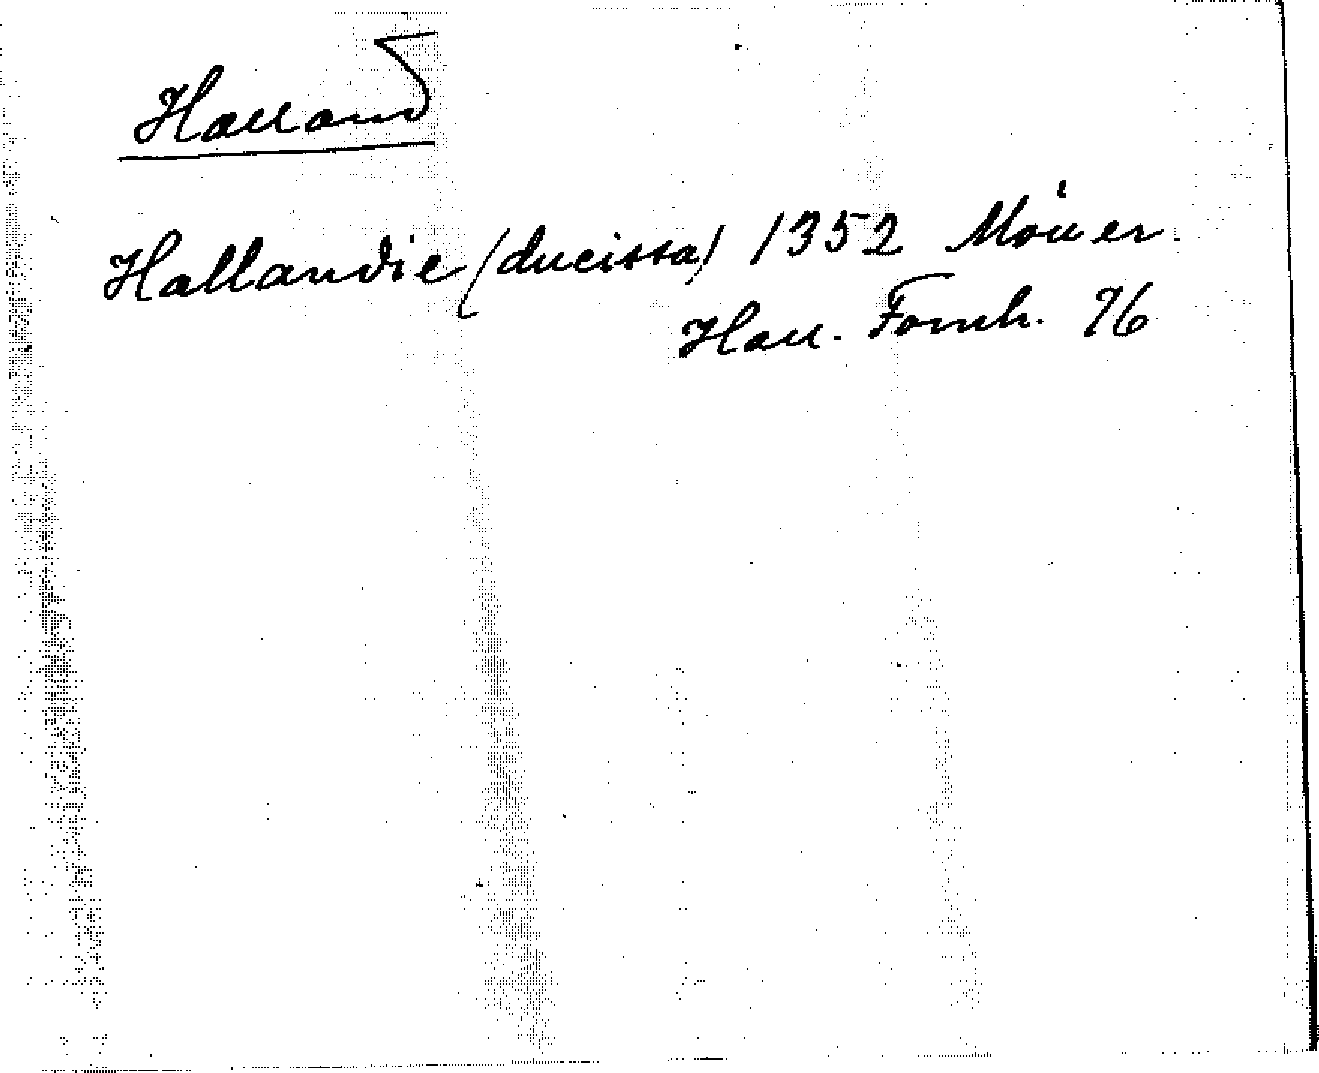 Halland
Hallandie (ducissa) 1352 Möller
Hall. Fornh. 76